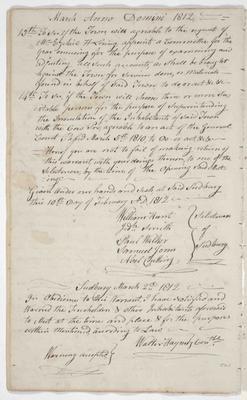 March Anno Domini 1812
13th To See if the Town will agreable to the request of
Mr Elijah Haring appoint a Committee for the
year ensuing for the purpose of examining and
adjusting all such accounts as shall be brought
against the Town for Services done, or Materials
found on behalf of Said Town to do or act &c
14th To See if the Town will choose two or more Suitable
persons for the purpose of Superintending
the Innoculation of the Inhabitants of said Town
with the Cow Pox agreable to an act of the General
Court Passed March 6th 1810 &c Or act &c
Hereof you are not to fail of making return of
this warrant with your doings thereon to one of the
Selectmen by the time of the Opening Said Meeting
Given Under our hands and Seals at Said Sudbury
this 10th Day of February AD, 1812
William Hunt
Jda Smith
Paul Walker
Samuel Jones
Abel Cutting
Selectmen
of
Sudbury
Sudbury March 2nd 1812
In Obedience to this Warrant I have Notified and
Warned the Freeholders & other Inhabitants to
Meet at the time and place & for the Purposes
within Mentioned, according to Law
Walter Haynes Const.
Warning accepted